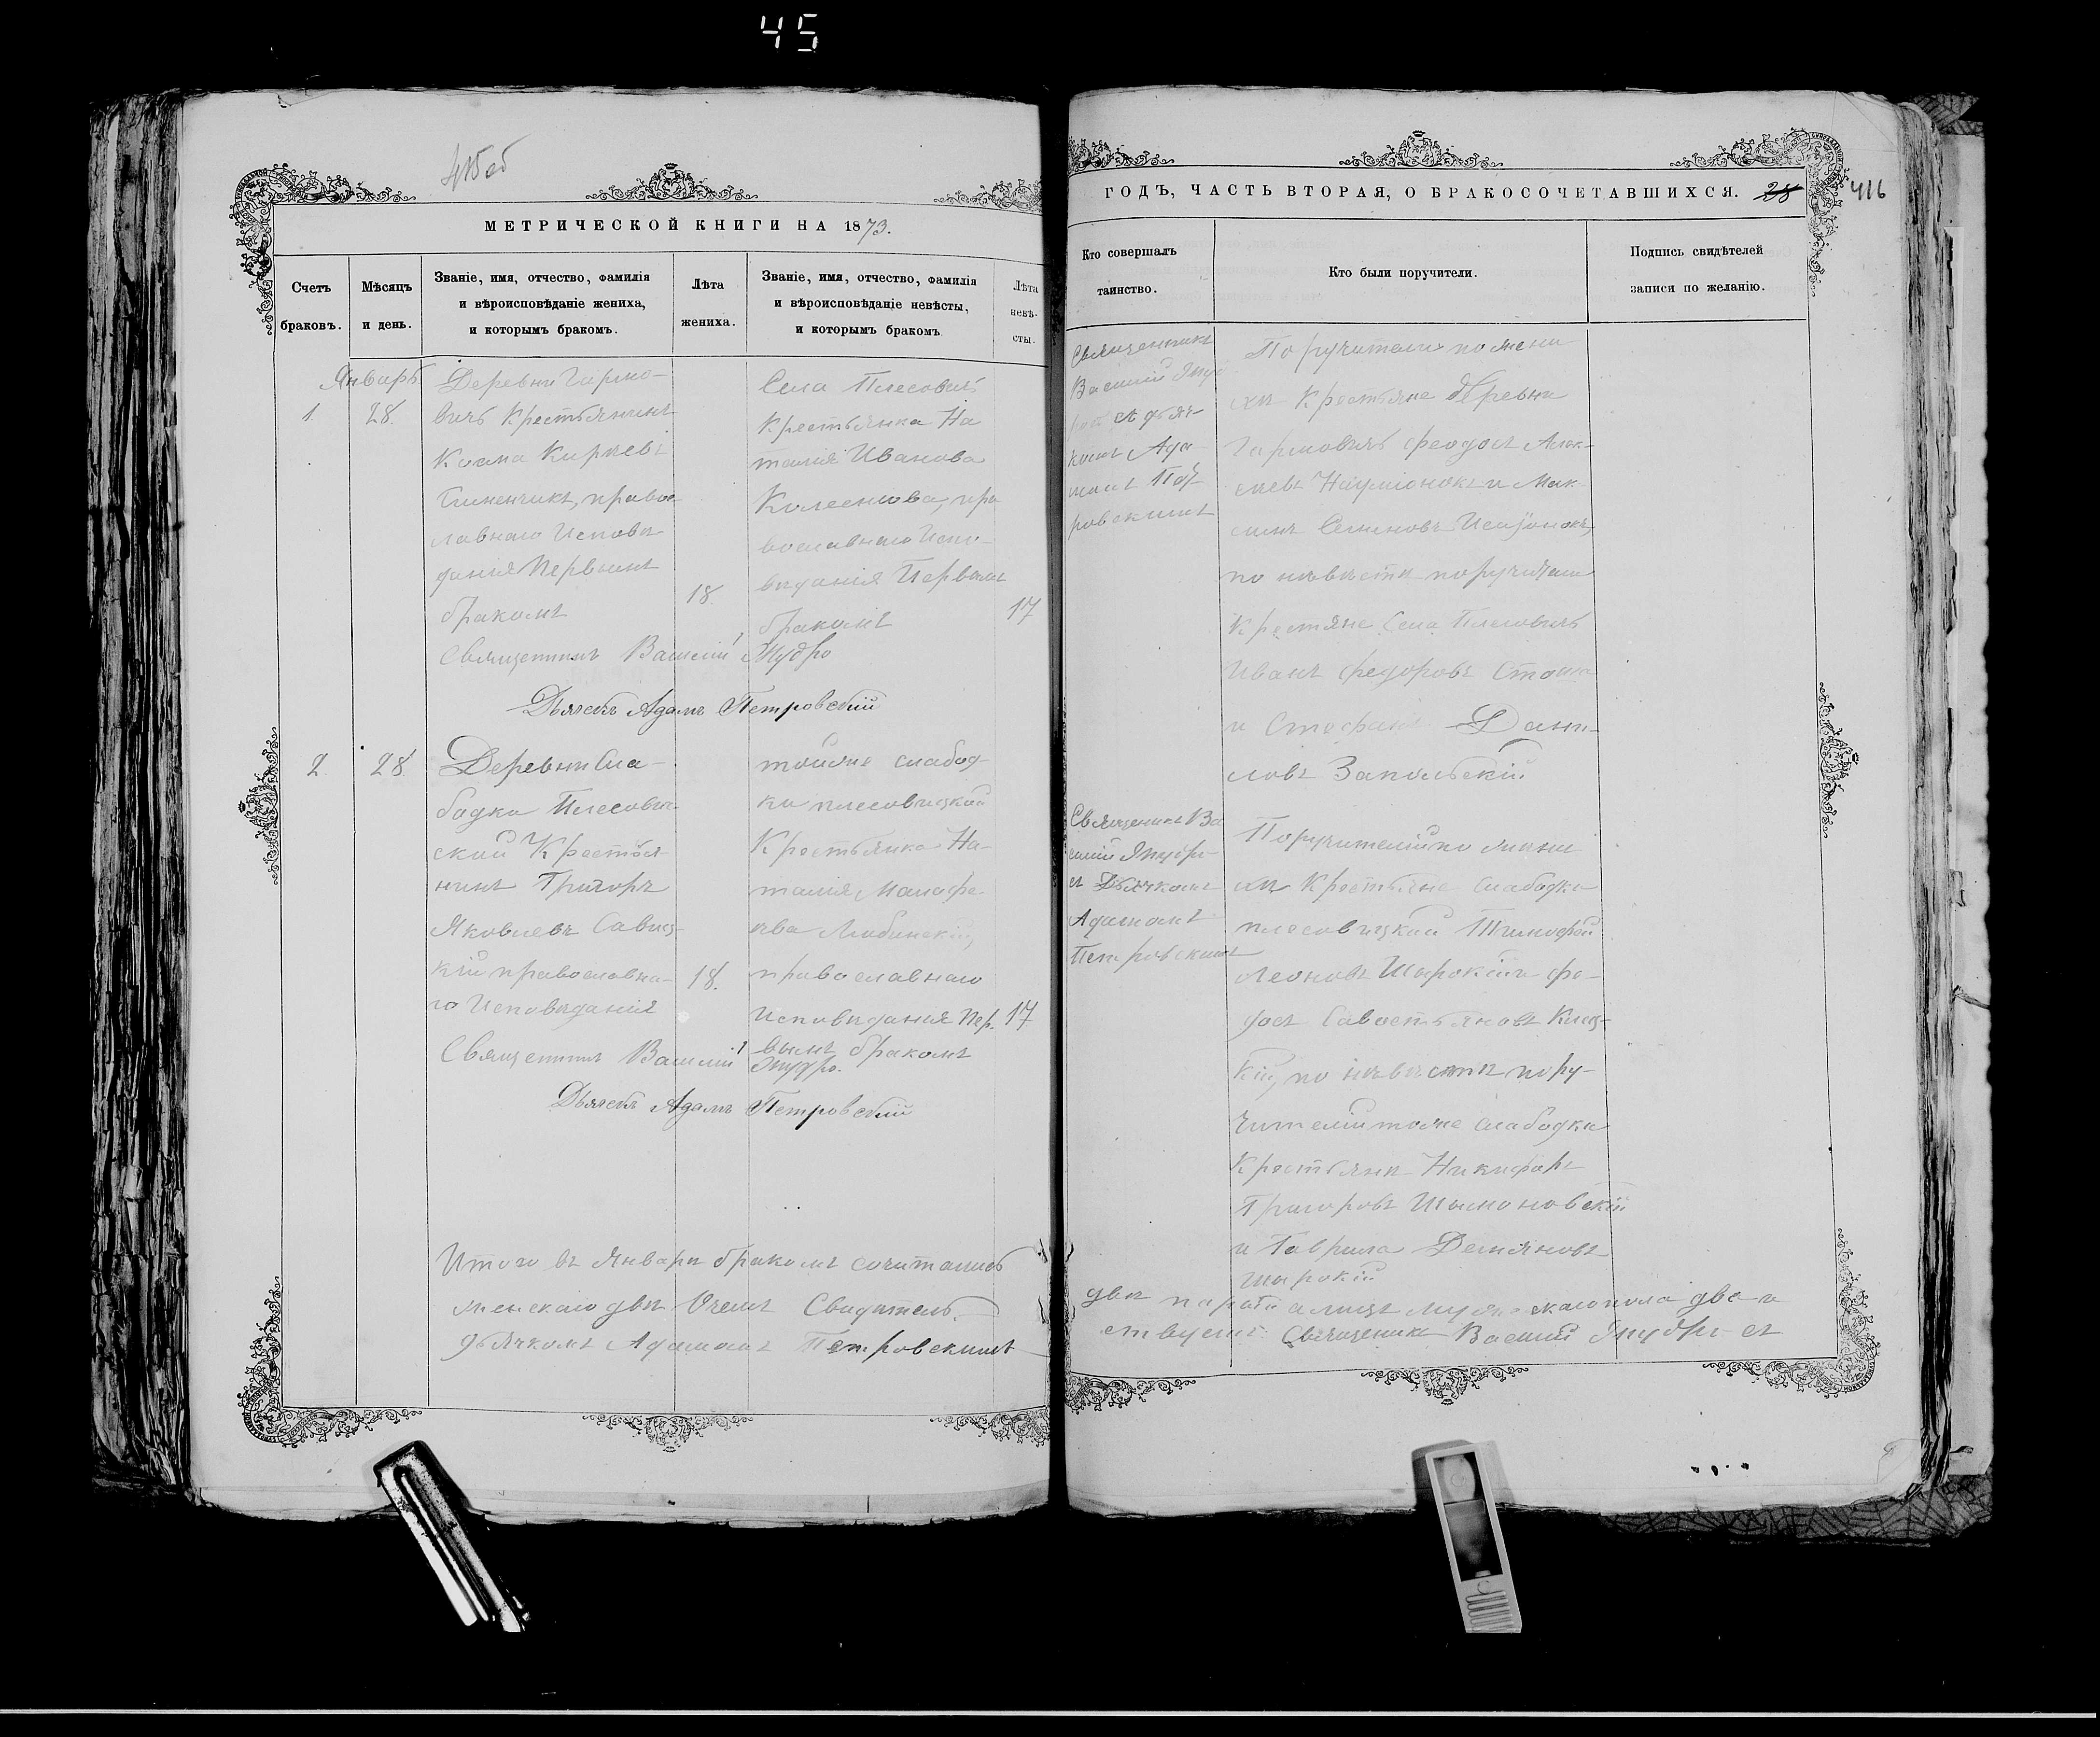 45
415 об
МЕТРИЧЕСКОЙ КНИГИ НА 1873.
Счетъ браковъ.
Мѣсяцъ и день.
Званіе, имя, отчество, фамилія
и вѣроисповѣданіе жениха,
и которымъ бракомъ.
Лѣта жениха.
Званіе, имя, отчество, фамилія
и вѣроисповѣданіе невѣсты,
и которымъ бракомъ
Лѣта невѣ-
сты.
Январь
1 28.
Деревни Гармо-
вичъ Крестьянинъ
Козма
православнаго Исповѣ
данія Первымъ
бракомъ
18.
Села Плесовичь
Крестьянка На
талія Иванова
пра
вославнаго Испо-
вѣданія Первымъ
бракомъ
17
Священникъ Василій
Дьячекъ Адамъ Петровскій
2 28.
Деревни Сла-
бодки Плесовиц-
кой Крестья-
нинъ Григорь
Яковлевъ Савиц-
кій православна-
го Исповѣданія
18.
тойже слабод-
ки плесовицкой
Крестьянка На-
талія Малофе-
ева
православнаго
Исповѣданія Пер-
вымъ бракомъ
17
Священникъ Василій
Дьячекъ Адамъ Петровскій
Итого въ Январѣ бракомъ сочитались
женскаго две Свидѣтель-
дьячкомъ Адамомъ Петровскимъ
ГОДЪ, ЧАСТЬ ВТОРАЯ, О БРАКОСОЧЕТАВШИХСЯ. 28 416
Кто совершалъ
таинство.
Кто были поручители.
Подпись свидѣтелей
записи по желанію.
Священникъ
Василій
съ дьяч-
комъ Ада-
момъ Пет-
ровскимъ
Поручители по жени
хѣ Крестьяне Деревни
Гармовичь Феодосъ Алек-
сѣевъ и Мак-
симъ
по невѣстѣ поручители
Крестяне Села Плесовичь
Иванъ Федоровъ
и Стефанъ Дани-
ловъ Запольскій
Священникъ Ва
силій
съ Дьячкомъ
Адамомъ
Петровскимъ
Поручители по жени
хѣ Крестьяне Слабодки
плесовицкой Тимофей
Леоновъ Широкій и Фе-
досъ Савостьяновъ
по невѣстѣ пору-
чители тойже слабодки
Крестьяни Никифоръ
Григоровъ
и Гаврила Демяновъ
Широкій
две пары а лицъ мужескаго пола два и
ствуетъ Священникъ Василій съ